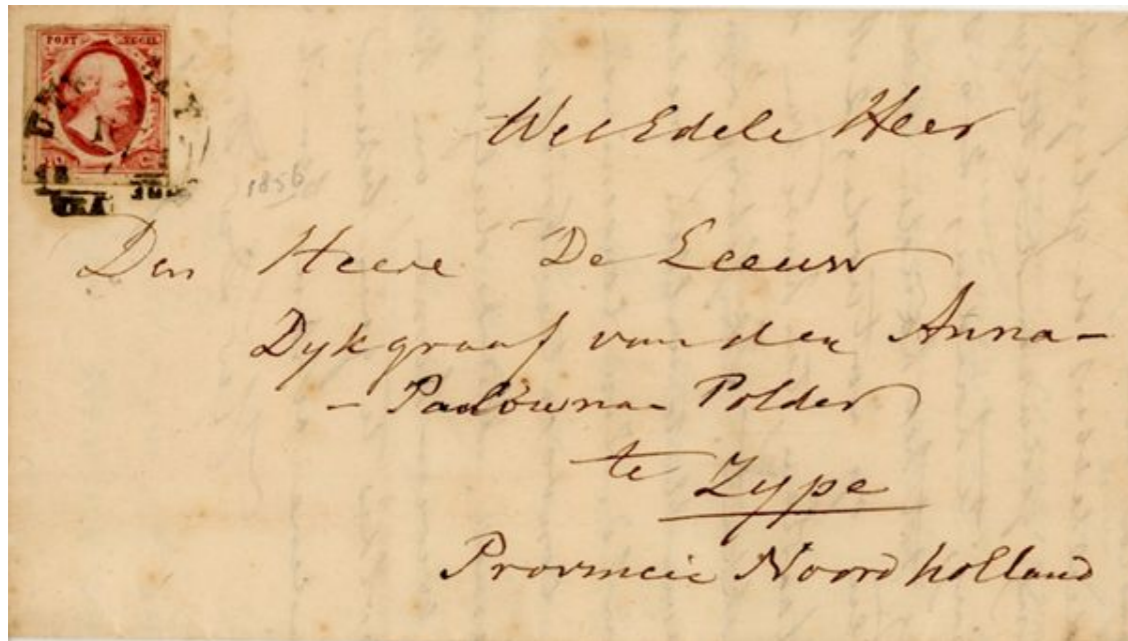 POST ZEGEL
1856
Wel Edele Heer
Den Heere De Leeuw
Dykgraaf van den Anna-
- Paulowna Polder
te Zype
Provincie Noordholland